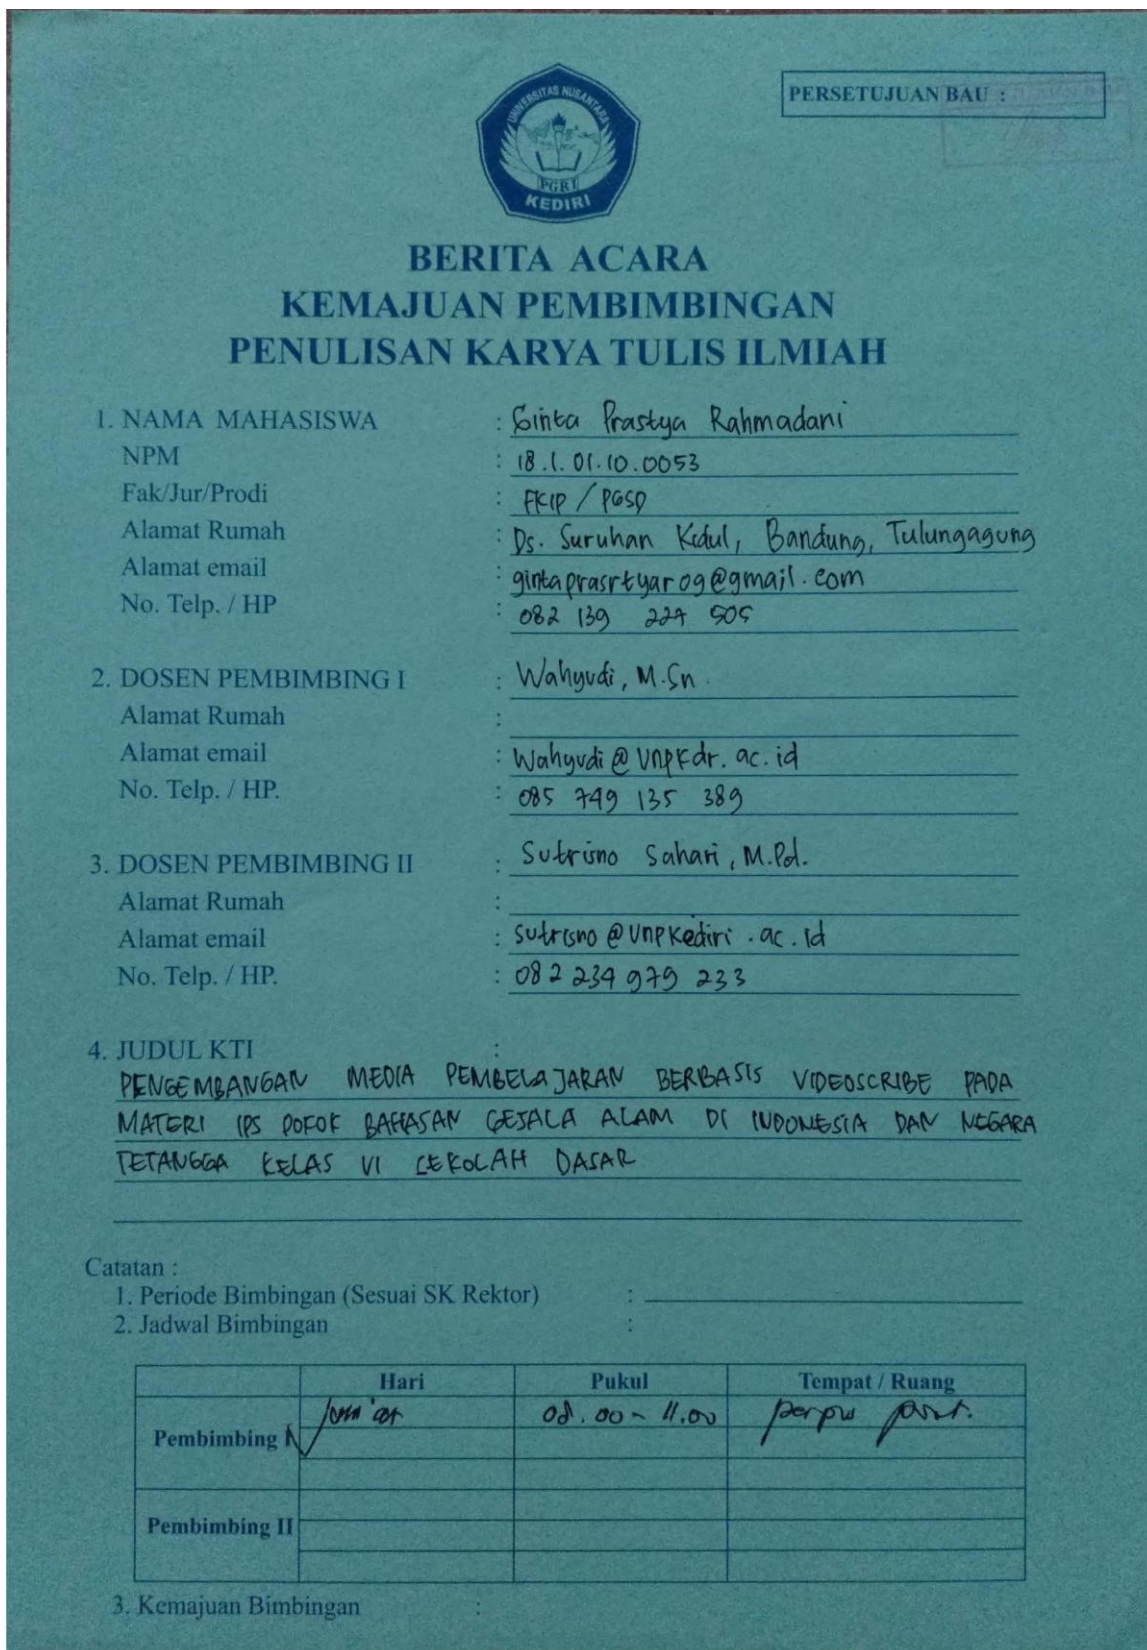 PERSETUJUAN BAU :
UNIVERSITAS NUSANTARA
PGRI
KEDIRI
BERITA ACARA
KEMAJUAN PEMBIMBINGAN
PENULISAN KARYA TULIS ILMIAH
1. NAMA MAHASISWA : Ginta Prastya Rahmadani
NPM : 18.1.01.10.0053
Fak/Jur/Prodi : FKIP / PGSD
Alamat Rumah : Ds. Suruhan Kidul, Bandung, Tulungagung
Alamat email : gintaprasrtyar09@gmail.com
No. Telp. / HP : 082 139 227 505
2. DOSEN PEMBIMBING I : Wahyudi, M.Sn.
Alamat Rumah :
Alamat email : Wahyudi@unpkdr.ac.id
No. Telp. / HP. : 085 749 135 389
3. DOSEN PEMBIMBING II : Sutrisno Sahari, M.Pd.
Alamat Rumah :
Alamat email : sutrisno@unpkediri.ac.id
No. Telp. / HP. : 082 234 979 233
4. JUDUL KTI :
PENGEMBANGAN MEDIA PEMBELAJARAN BERBASIS VIDEOSCRIBE PADA
MATERI IPS POKOK BAHASAN GEJALA ALAM DI INDONESIA DAN NEGARA
TETANGGA KELAS VI SEKOLAH DASAR
Catatan :
1. Periode Bimbingan (Sesuai SK Rektor) :
2. Jadwal Bimbingan :
Hari Pukul Tempat / Ruang
Pembimbing I Jum'at 08.00 - 11.00 perpus
Pembimbing II
3. Kemajuan Bimbingan :